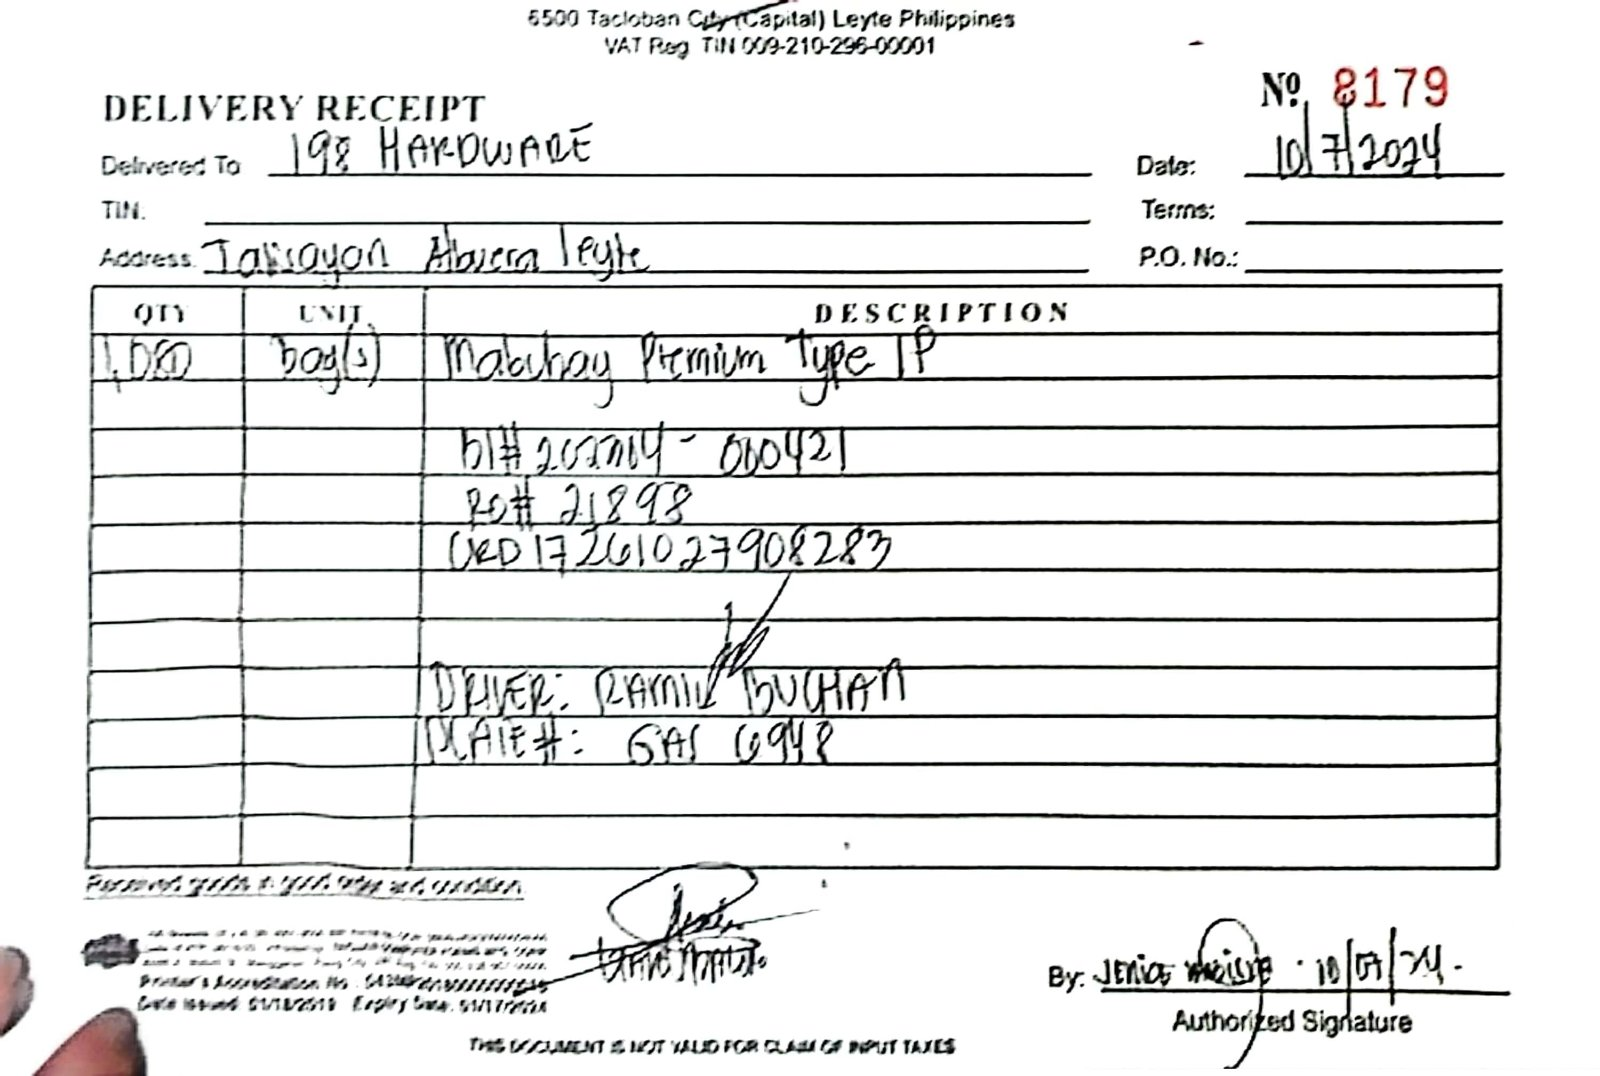 6500 Tacloban City (Capital) Leyte Philippines
VAT Reg TIN 009-210-296-00001
Nº 8179
DELIVERY RECEIPT
Delivered To 198 HARDWARE
Date: 10/7/2024
TIN:
Terms:
Address: Talisayon Albuera leyte
P.O. No.:
QTY UNIT DESCRIPTION
1,080 bag(s) Mabuhay Premium Type 1P
000421
PO# 21898
17261027908283
DRIVER: RAMIL BUCHAN
PLATE#: GAS 6948
Received goods in good order and condition
Printer's Accreditation No
Date Issued: 01/18/2019 Expiry Date: 01/17/2024
By: JENICE 10/07/24.
Authorized Signature
THIS DOCUMENT IS NOT VALID FOR CLAIM OF INPUT TAXES